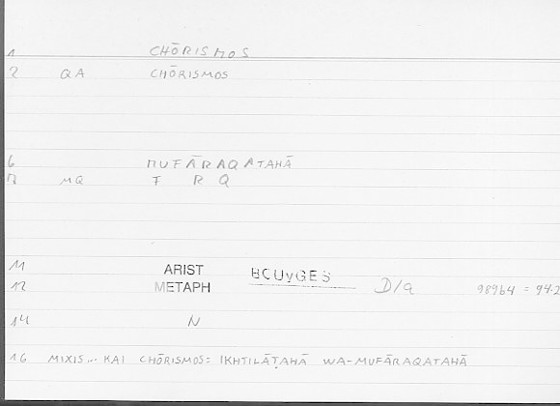 1 CHŌRISMOS
2 QA CHŌRISMOS
6 MUFĀRAQATAHĀ
7 MQ F R Q
11 ARIST BOUYGES
12 METAPH D/a 989b4 = 94.2
14 N
16 MIXIS... KAI CHŌRISMOS: IKHTILĀṬAHĀ WA-MUFĀRAQATAHĀ